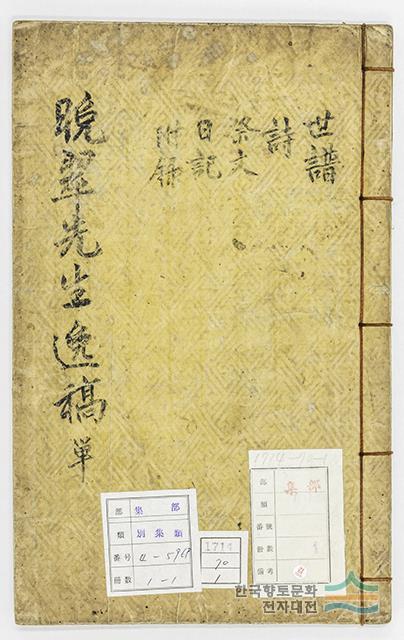 世譜
詩
祭文
日記
附錄
晩翠先生逸稿 單
部 集 部
類 別集類
番号
冊数 1-1
1714
90
1
部 集部
類
番號
冊數
備考
한국향토문화
전자대전